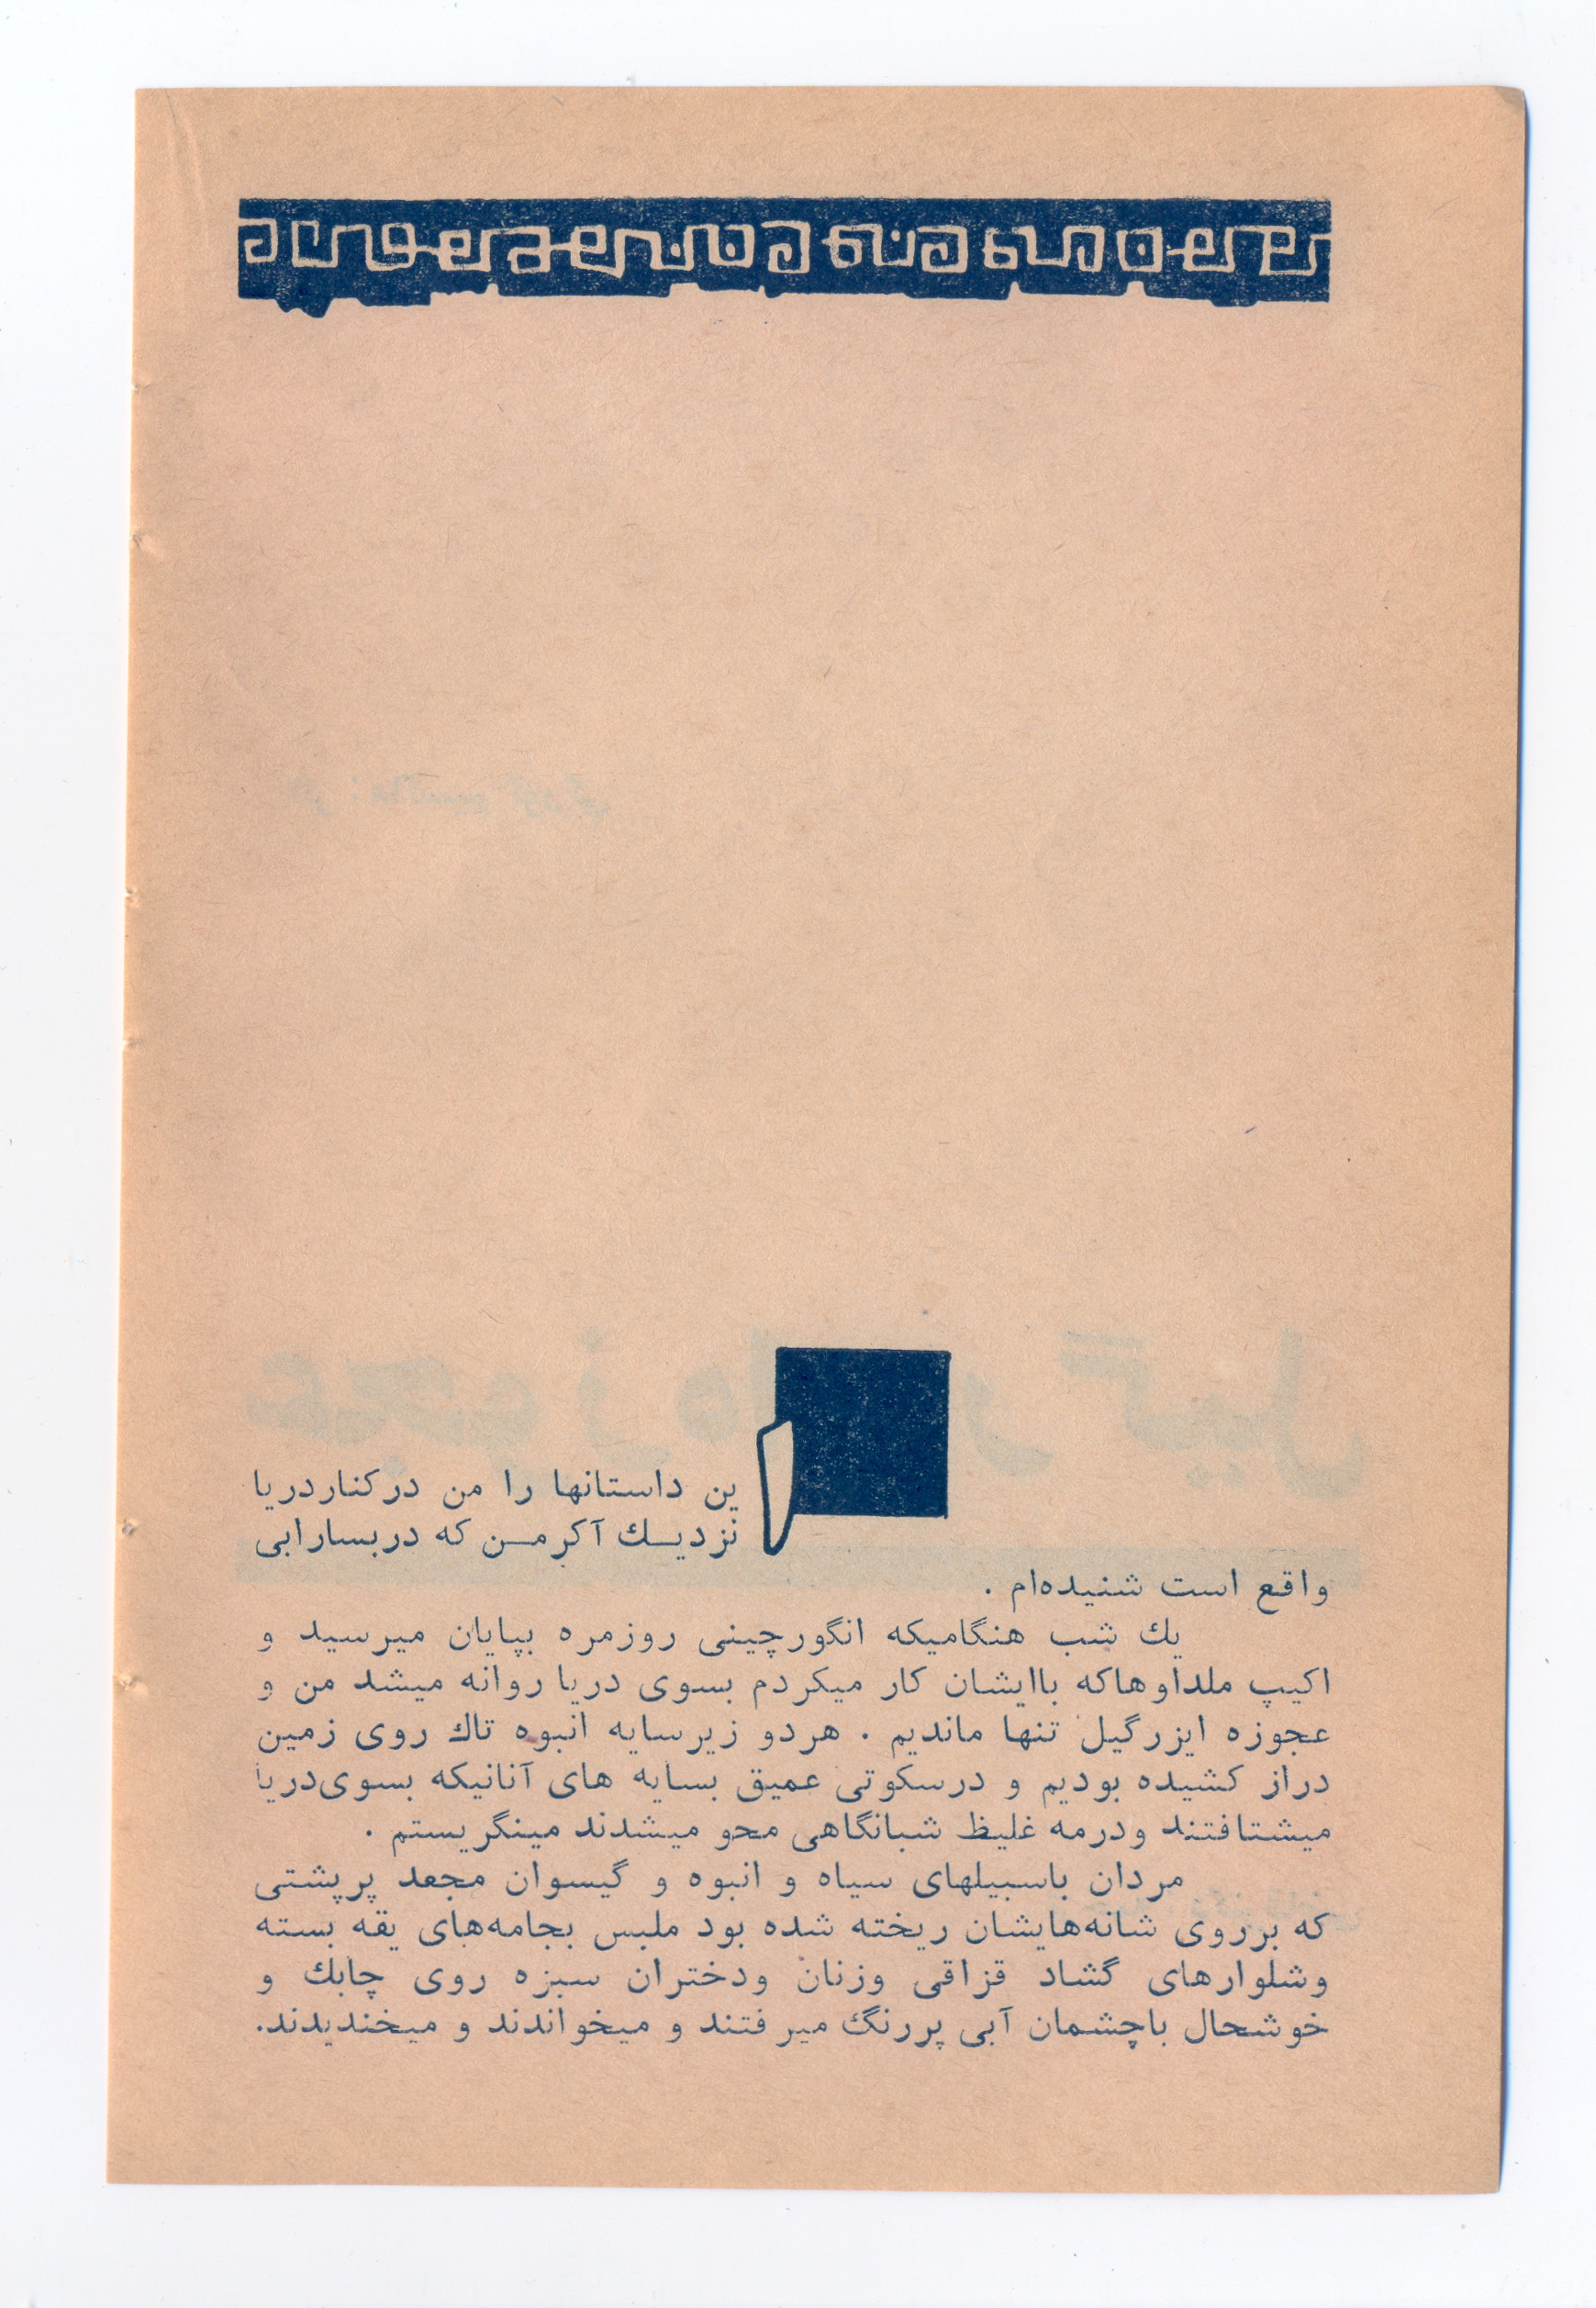 این داستانها را من در کنار دریا
نزدیـك آکرمـن که در بسارابی
واقع است شنیده‌ام .
یك شب هنگامیکه انگورچینی روزمره بپایان میرسید و
اکیپ ملداوها که باایشان کار میکردم بسوی دریا روانه میشد من و
عجوزه ایزرگیل تنها ماندیم . هردو زیرسایه انبوه تاك روی زمین
دراز کشیده بودیم و درسکوتی عمیق بسایه های آنانیکه بسوی‌دریا
میشتافتند ودرمه غلیظ شبانگاهی محو میشدند مینگریستم .
مردان باسبیلهای سیاه و انبوه و گیسوان مجعد پرپشتی
که برروی شانه‌هایشان ریخته شده بود ملبس بجامه‌های یقه بسته
وشلوارهای گشاد قزاقی وزنان ودختران سبزه روی چابك و
خوشحال باچشمان آبی پررنگ میرفتند و میخواندند و میخندیدند.